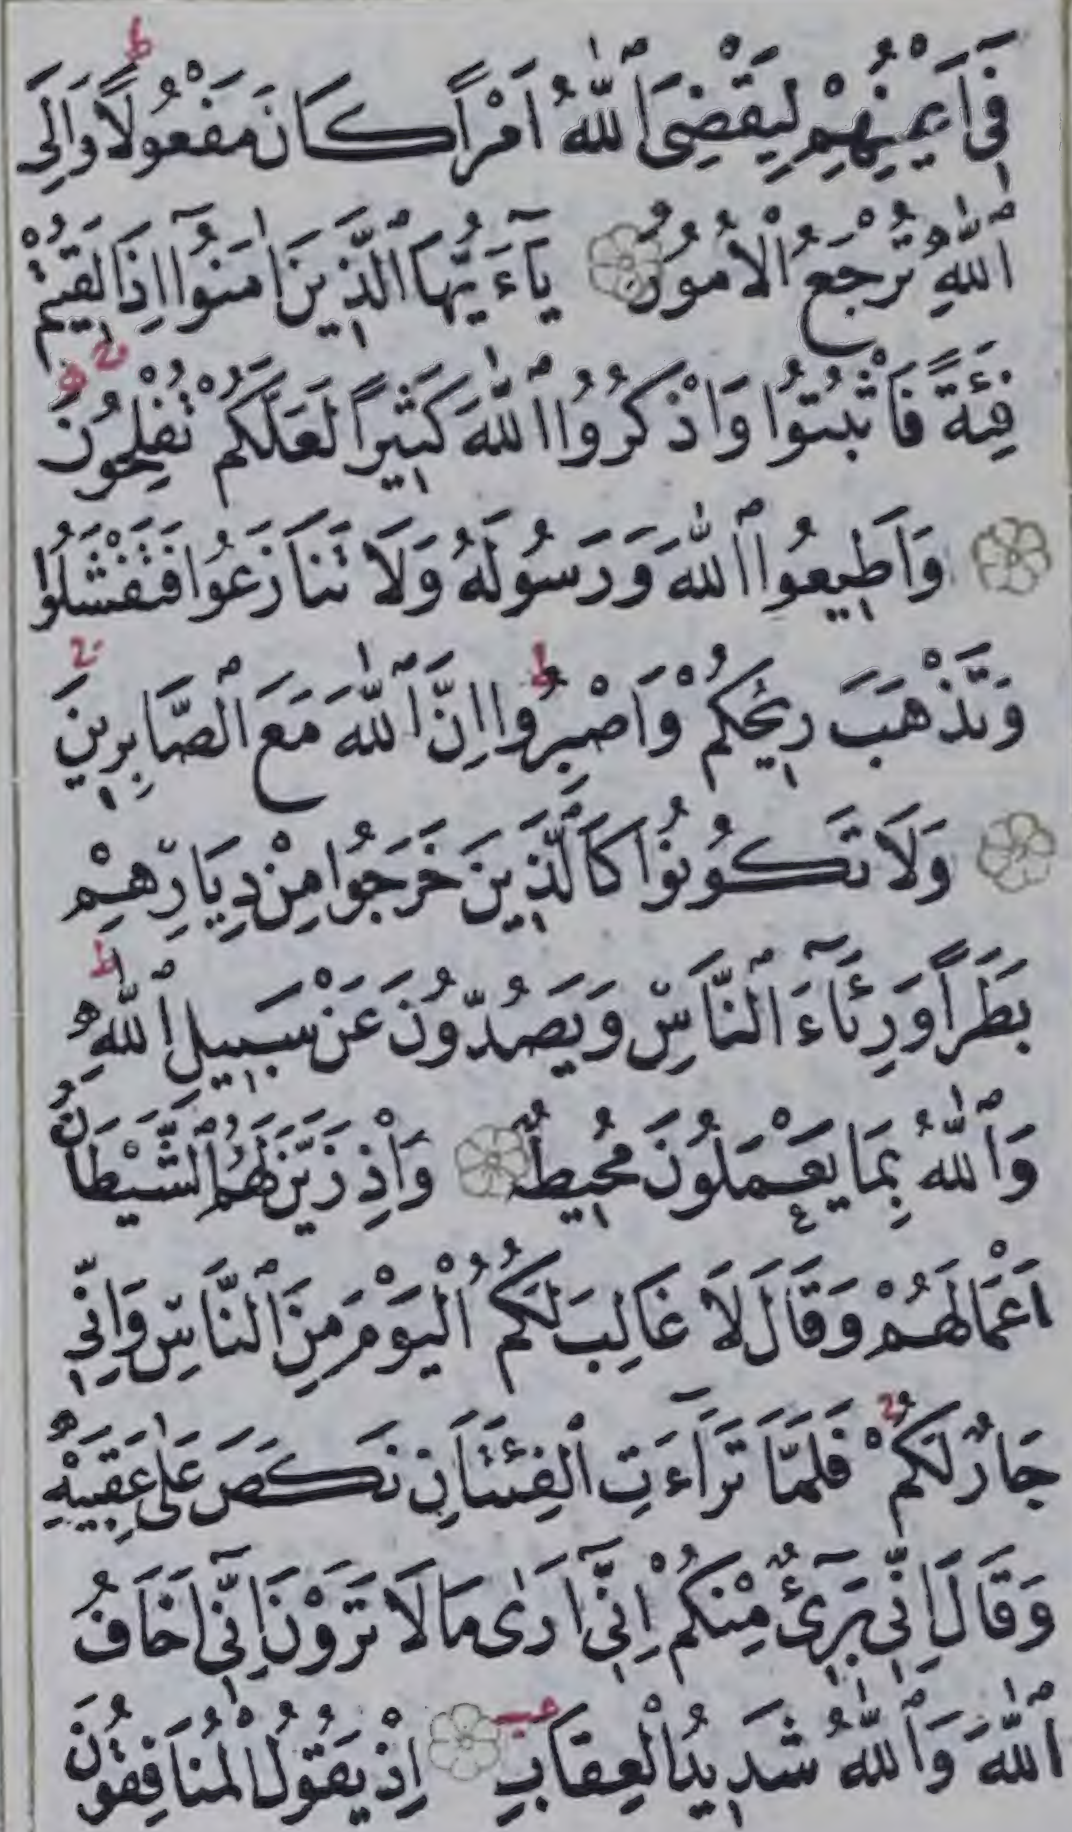 فِٓى اَعْيُنِهِمْ لِيَقْضِىَ ٱللّٰهُ اَمْرًا كَانَ مَفْعُولًاؕ وَاِلَى
ٱللّٰهِ تُرْجَعُ الْاُمُورُ ۝ يَآءَيُّهَا ٱلَّذِينَ اٰمَنُوٓا اِذَا لَقِيتُمْ
فِئَةً فَاثْبُتُوا وَاذْكُرُوا ٱللّٰهَ كَثِيرًا لَعَلَّكُمْ تُفْلِحُونَ
۝ وَاَطِيعُوا ٱللّٰهَ وَرَسُولَهُ وَلَا تَنَازَعُوا فَتَفْشَلُوا
وَتَذْهَبَ رِيحُكُمْ وَاصْبِرُواؕ اِنَّ ٱللّٰهَ مَعَ ٱلصَّابِرِينَ
۝ وَلَا تَكُونُوا كَٱلَّذِينَ خَرَجُوا مِنْ دِيَارِهِمْ
بَطَرًا وَرِئَآءَ ٱلنَّاسِ وَيَصُدُّونَ عَنْ سَبِيلِ ٱللّٰهِؕ
وَٱللّٰهُ بِمَا يَعْمَلُونَ مُحِيطٌ ۝ وَاِذْ زَيَّنَ لَهُمُ ٱلشَّيْطَانُ
اَعْمَالَهُمْ وَقَالَ لَا غَالِبَ لَكُمُ الْيَوْمَ مِنَ ٱلنَّاسِ وَاِنِّى
جَارٌ لَكُمْ فَلَمَّا تَرَآءَتِ ٱلْفِئَتَانِ نَكَصَ عَلٰى عَقِبَيْهِ
وَقَالَ اِنِّى بَرِٓىءٌ مِنْكُمْ اِنِّٓى اَرٰى مَا لَا تَرَوْنَ اِنِّٓى اَخَافُ
ٱللّٰهَ وَٱللّٰهُ شَدِيدُ الْعِقَابِ ۝ اِذْ يَقُولُ الْمُنَافِقُونَ